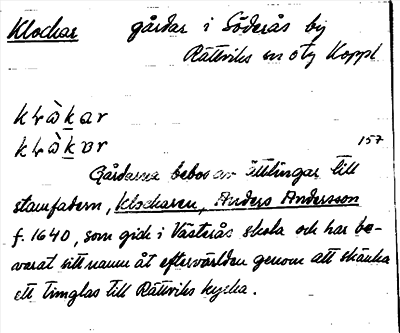 Klockar gårdar i Söderås by
Rättviks sn och Koppl
klàkar
klàkɒr
157
Gårdarna bebos av ättlingar till
stamfadern, klockaren, Anders Andersson
f. 1640, som gick i Västerås skola och har be-
varat sitt namn åt eftervärlden genom att skänka
ett timglas till Rättviks kyrka.